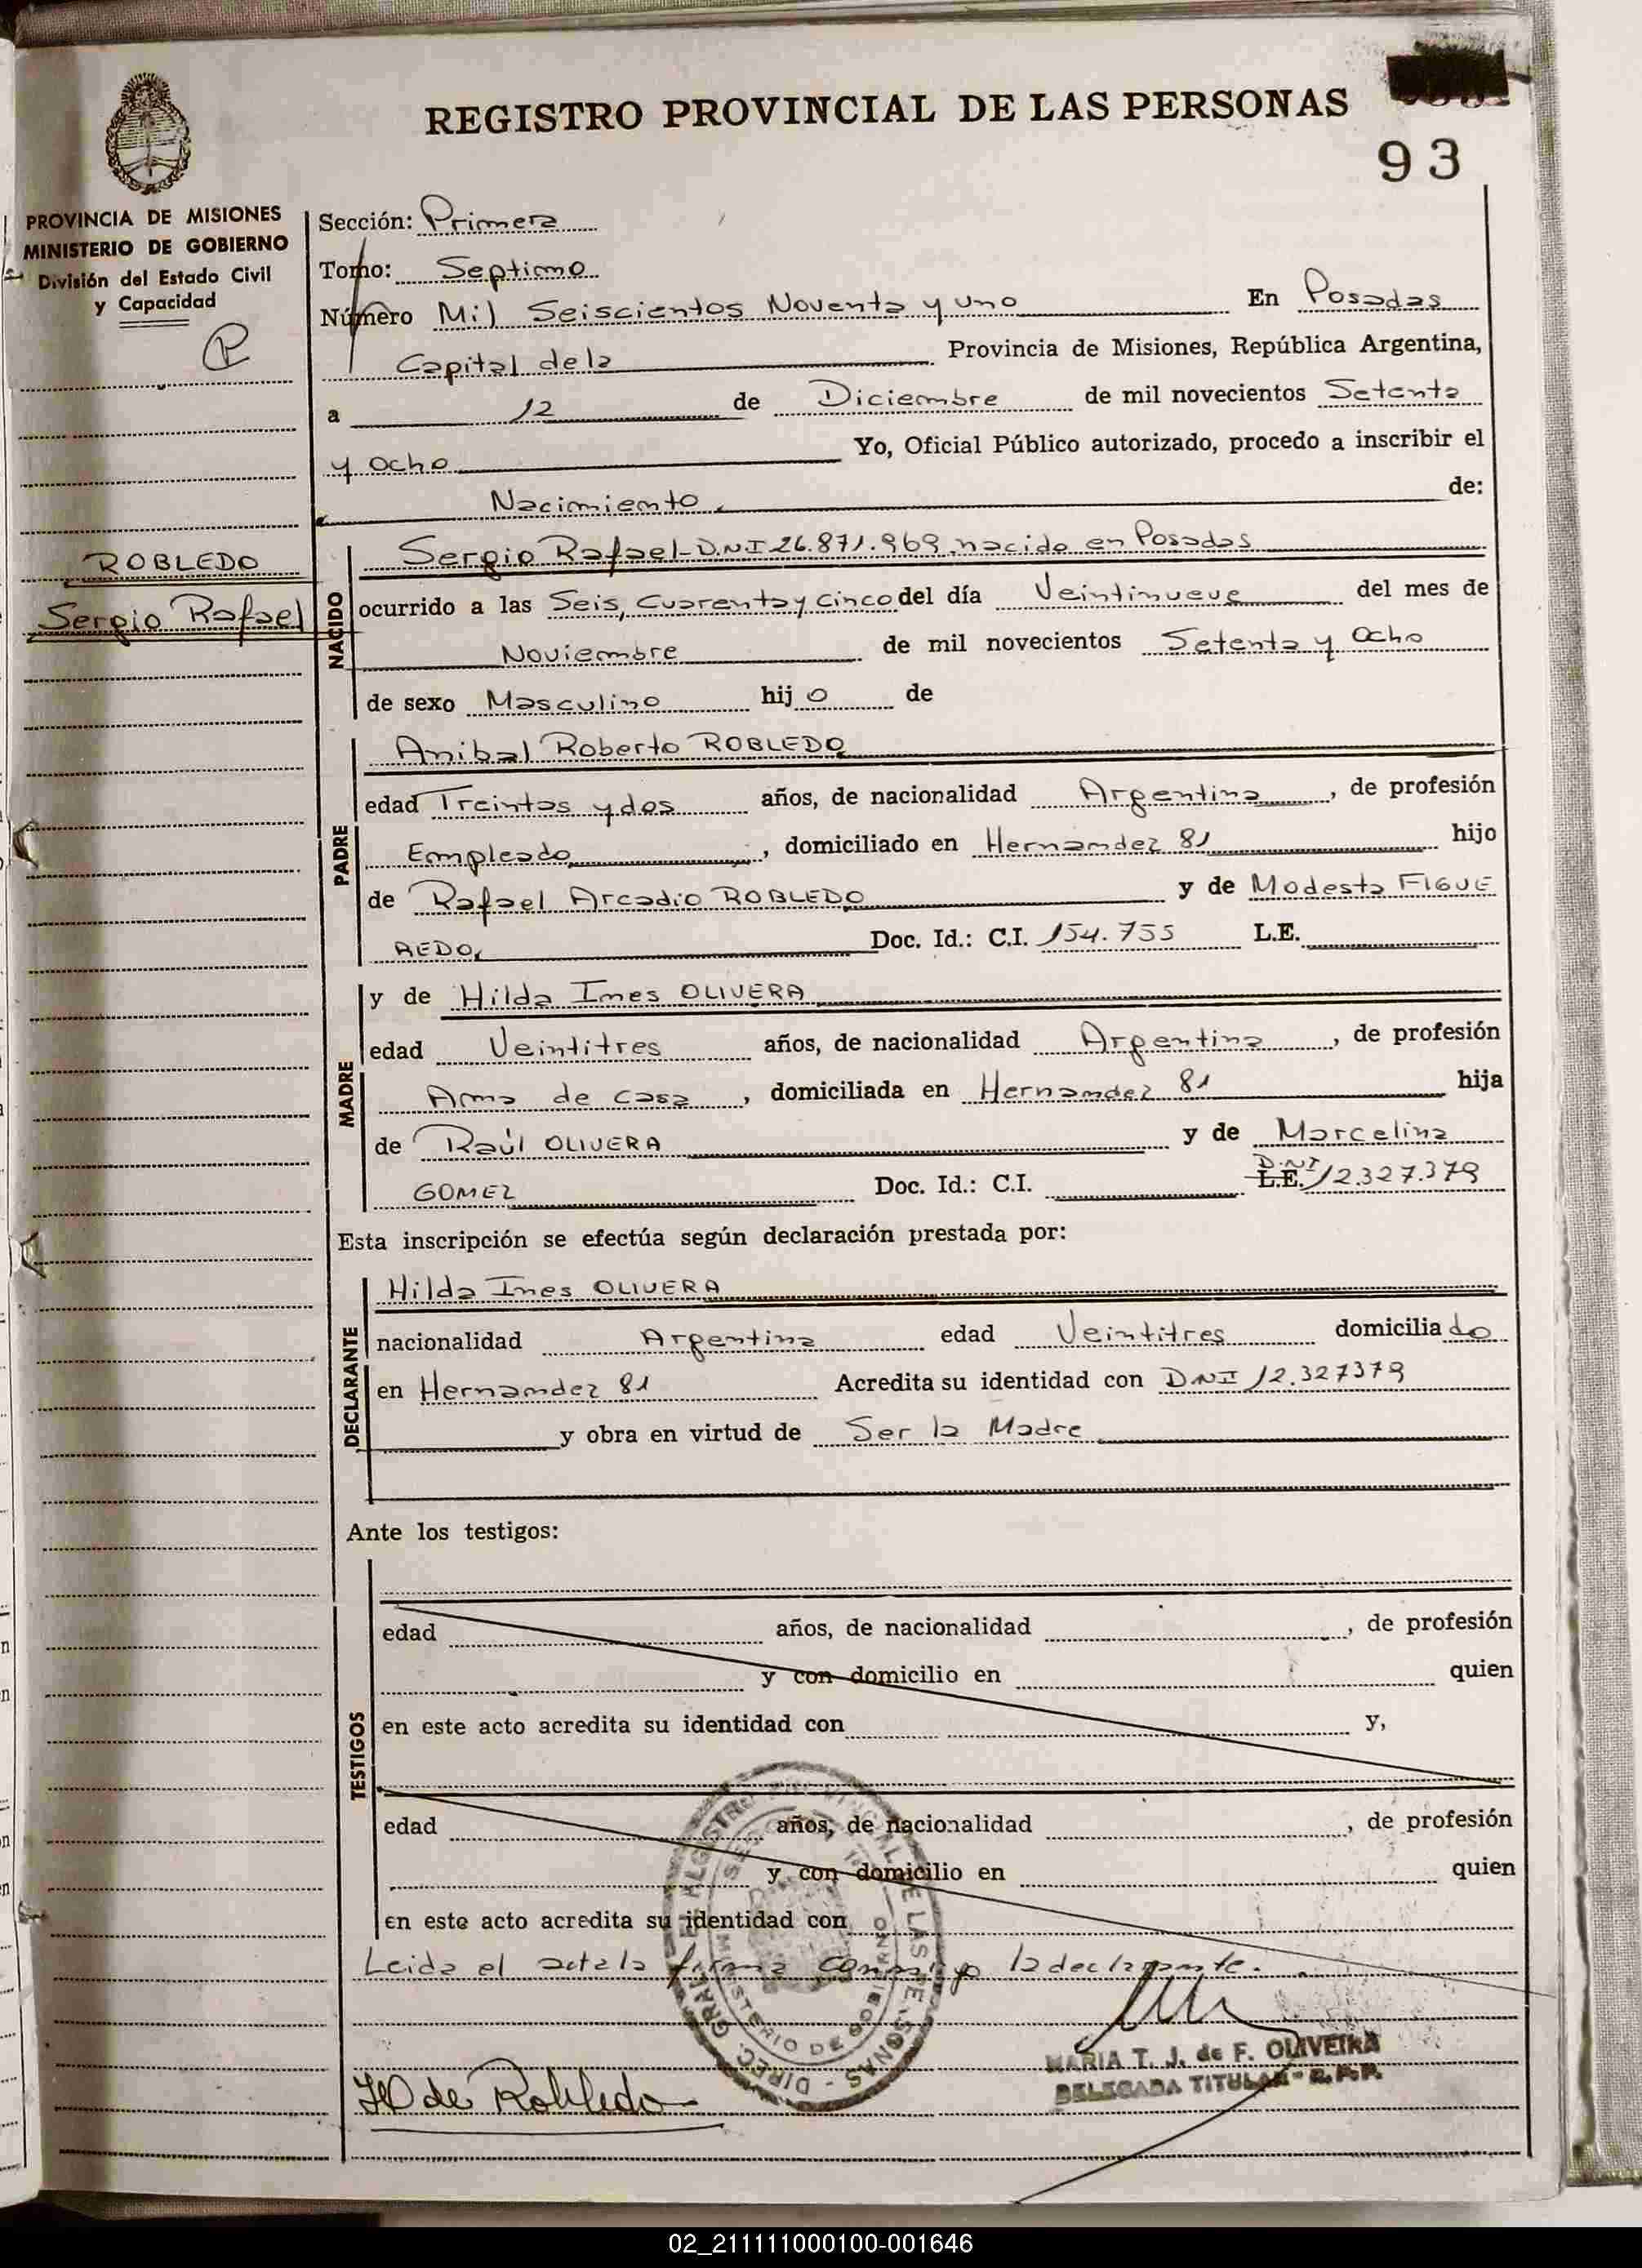 REGISTRO PROVINCIAL DE LAS PERSONAS
93
PROVINCIA DE MISIONES
MINISTERIO DE GOBIERNO
División del Estado Civil
y Capacidad
ROBLEDO
Sergio Rafael
Sección: Primera
Tomo: Septimo
Número Mil Seiscientos Noventa y uno En Posadas
Capital de la Provincia de Misiones, República Argentina,
a 12 de Diciembre de mil novecientos Setenta
y ocho Yo, Oficial Público autorizado, procedo a inscribir el
Nacimiento de:
NACIDO
Sergio Rafael - D.N.I 26.871.969, nacido en Posadas
ocurrido a las Seis, Cuarenta y cinco del día Veintinueve del mes de
Noviembre de mil novecientos Setenta y Ocho
de sexo Masculino hijo de
PADRE
Anibal Roberto ROBLEDO
edad Treintas y dos años, de nacionalidad Argentina, de profesión
Empleado, domiciliado en Hernandez 81 hijo
de Rafael Arcadio ROBLEDO y de Modesta FIGUE
REDO, Doc. Id.: C.I. 154.755 L.E.
MADRE
y de Hilda Ines OLIVERA
edad Veintitres años, de nacionalidad Argentina, de profesión
Ama de casa, domiciliada en Hernandez 81 hija
de Raúl OLIVERA y de Marcelina
GOMEZ Doc. Id.: C.I. L.E. D.N.I 12.327.379
Esta inscripción se efectúa según declaración prestada por:
DECLARANTE
Hilda Ines OLIVERA
nacionalidad Argentina edad Veintitres domiciliado
en Hernandez 81 Acredita su identidad con DNI 12.327379
y obra en virtud de Ser la Madre
Ante los testigos:
TESTIGOS
edad años, de nacionalidad , de profesión
y con domicilio en quien
en este acto acredita su identidad con y,
edad años, de nacionalidad , de profesión
y con domicilio en quien
en este acto acredita su identidad con
Leida el acta la firma conmigo la declarante.
MARIA T. J. de F. OLIVEIRA
DELEGADA TITULAR - R.P.P.
HO de Robledo
02_211111000100-001646